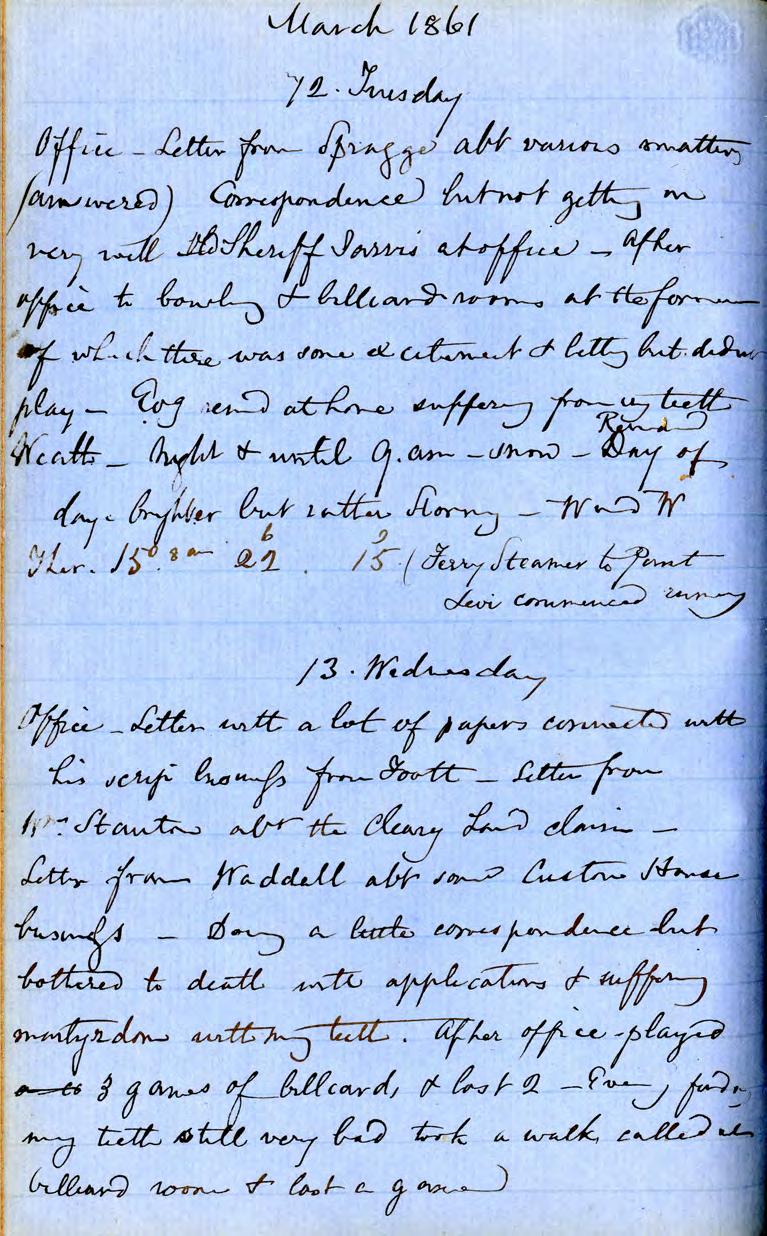 March 1861
12. Tuesday
Office - Letter from Spragge abt various matters
(answered) Correspondence but not getting on
very well Old Sheriff Jarvis at office - After
office to bowling & billiard rooms at the former
of which there was some excitement & betting but did not
play - Evg remd at home suffering from my teeth
Weath - Night & until 9. am - snow - Remaind
Day of
day brighter but rather stormy - Wind W
Ther. 15° 8 am 22 6 15 9 (Ferry Steamer to Point
Levi commenced running
13. Wednesday
Office - Letter with a lot of papers connected with
his scrip business from Foott - Letter from
Wm Stanton abt the Cleary Land claim -
Letter from Waddell abt some Custom House
business - Doing a little correspondence but
bothered to death with applications & suffering
martyrdom with my teeth. After office played
3 games of billiards & lost 2 - Eveng finding
my teeth still very bad took a walk, called at
billiard room & lost a game